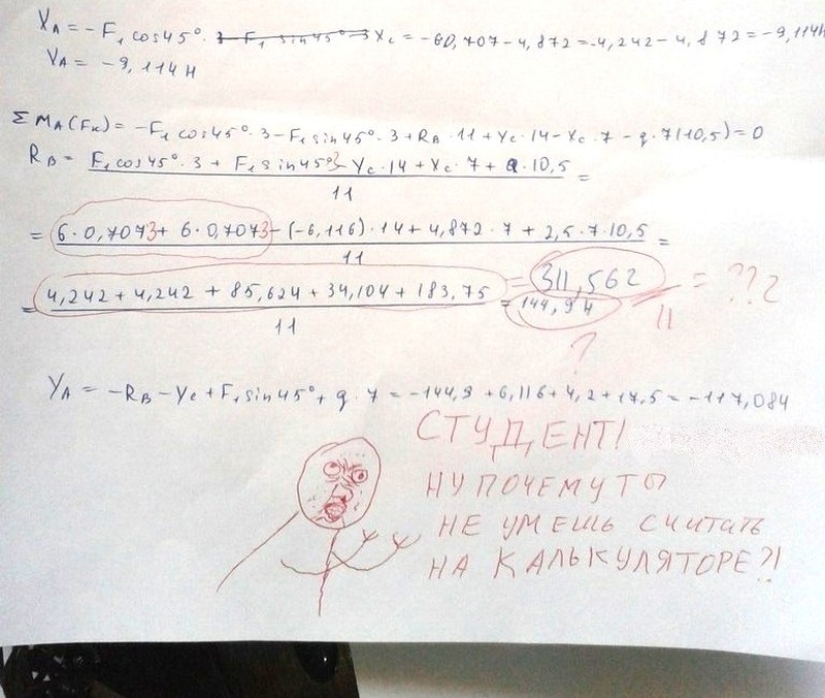 X_A = -F₁ cos45° · 3 - F₁ sin45° · 3 X_C = -60,707 - 4,872 = -4,242 - 4,872 = -9,114H
Y_A = -9,114H
ΣM_A(F_K) = -F₁ cos45° · 3 - F₁ sin45° · 3 + R_B · 11 + Y_C · 14 - X_C · 7 - q · 7(10,5) = 0
R_B = F₁ cos45° · 3 + F₁ sin45° 3 - Y_C · 14 + X_C · 7 + q · 10,5 =
11
= 6 · 0,707 3 + 6 · 0,707 3 - (-6,116) · 14 + 4,872 · 7 + 2,5 · 7 · 10,5 =
11
= 4,242 + 4,242 + 85,624 + 34,104 + 183,75 = 144,94 = 311,562 = ???
11 11
?
Y_A = -R_B - Y_C + F₁ sin45° + q · 7 = -144,9 + 6,116 + 4,2 + 17,5 = -117,084
СТУДЕНТ!
НУ ПОЧЕМУ ТЫ
НЕ УМЕШЬ СЧИТАТЬ
НА КАЛЬКУЛЯТОРЕ?!